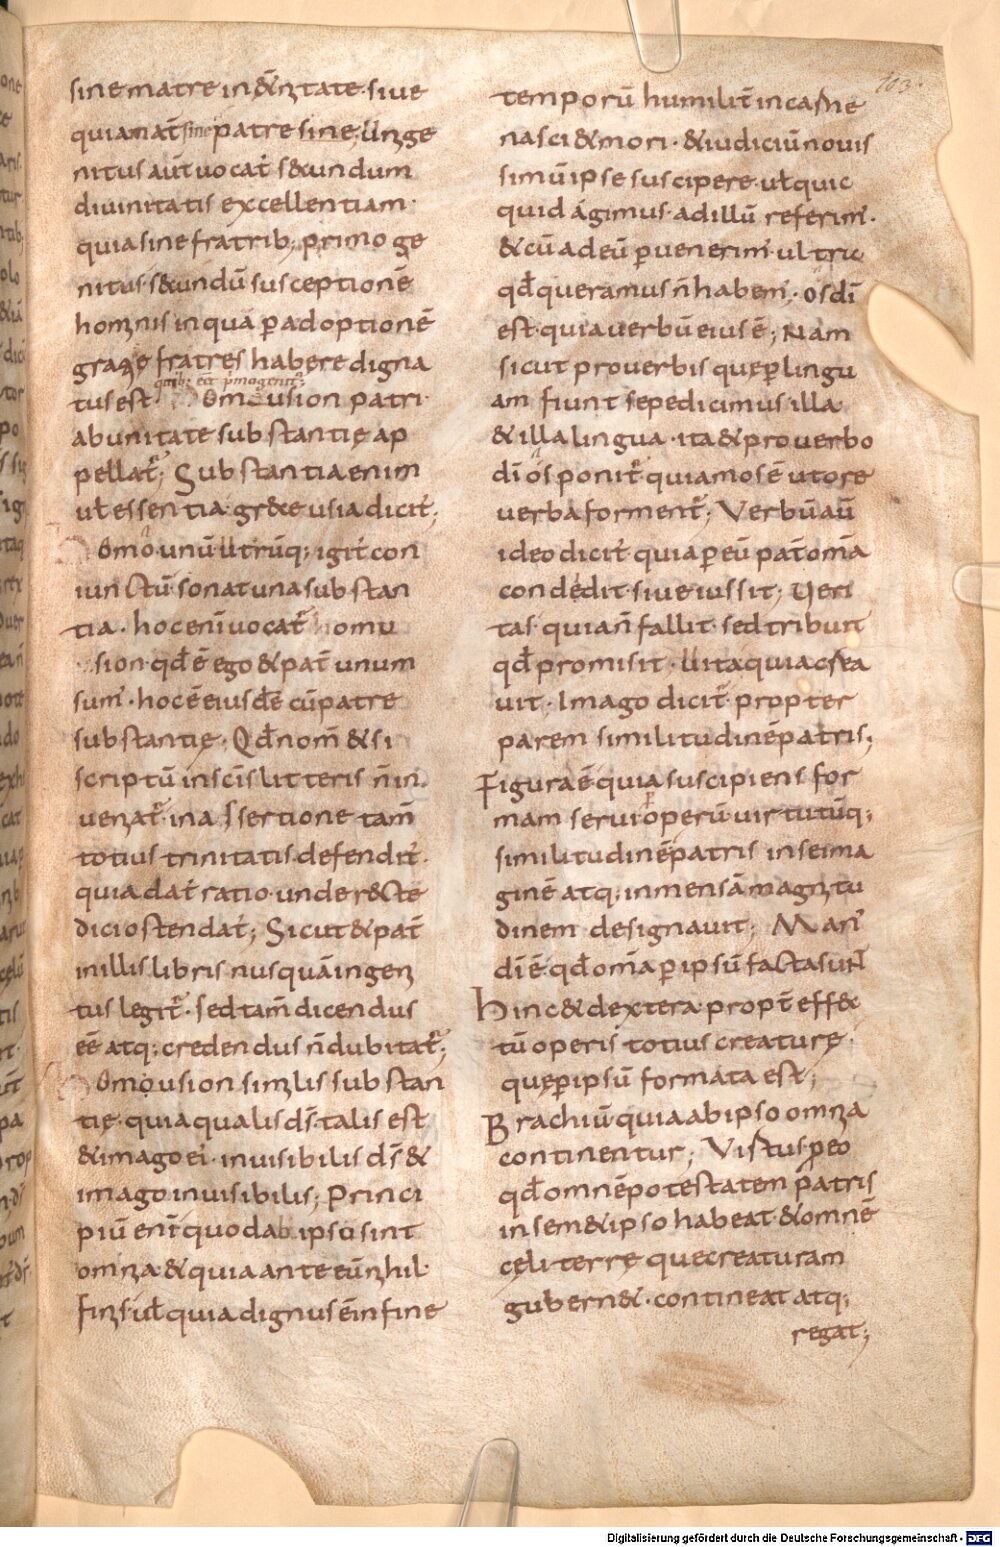 103.
sine matre in &̄nitate· siue
quia nat̄ sine patre sine; Unige
nitus aut̄ uocat̄ s&undum
diuinitatis excellentiam·
quia sine fratrib; primo ge
nitus· s&undū susceptionē
hominis in qua p̄ adoptionē
gratię fratres habere digna
quib; eēt p̄mogenit̄;
tus est· Omousion patri·
ab unitate substantię ap
pellat̄; Substantia enim
ul̄ essentia· gr&e usia dicit̄;
Omo unū· Utrūq; igit̄ con
iunctū· sonat una substan
tia· hoc enī uocat̄ homu
sion· qd̄ ē ego & pat̄ unum
sum̄· hoc ē eiusdē cū patre
substantię· Qd̄ nom̄ & si
scriptū in scīs litteris n̄ in
uenīat̄· in assertione tam̄
totius trinitatis defendit̄·
quia dat̄ ratio· unde r&te
dici ostendat̄; Sicut & pat̄
in illis libris nusquā ingeni
tus legit̄· sed tam̄ dicendus
eē atq; credendus n̄ dubitat̄;
Omousion similis substan
tię· quia qualis ds̄· talis est
& imago ei· inuisibilis ds̄ &
imago inuisibilis; Princi
piū· en̄i quod ab ipso sint
omnia· & quia ante eū nihil·
finis· ul̄ quia dignus ē in fine
temporū humilit̄ in carne
nasci & mori· & iudiciū nouis
simū ipse suscipere· ul̄ quic
quid ágimus· ad illū referim̄·
& cū ad eū peruenerim̄· ultra
qd̄ queramus n̄ habem̄· os dī
est· quia uerbū eius ē; Nam
sicut pro uerbis quę p̄ lingu
am fiunt sepe dicimus illa
& illa lingua· ita & pro uerbo
dī os ponit̄· quia mos ē ut ore
uerba forment̄; Verbū aū
ideo dicit̄ quia p̄ eū pat̄ om̄a
condédit· siue iussit; Ueri
tas· quia n̄ fallit· sed tribuit
qd̄ promisit· Uita quia crea
uit· Imago dicit̄ propter
parem similitudinē patris;
Figura ē quia suscipiens for
mam serui· operū uirtutūq;
similitudinē patris in se ima
ginē atq; inmensā magnitu
dinem designauit; Man̄
dī ē· qd̄ om̄a p̄ ipsū facta sunt
Hinc & dextera· propt̄ eff&
tū operis totius creaturę·
quę p̄ ipsū formata est;
Brachiū· quia ab ipso omnia
continentur; Virtus p̄ eo
qd̄ omnē potestatem patris
in sem&ipso habeat· & omnē
cęli terrę que creaturam
gubern&· contineat atq;
regat;
Digitalisierung gefördert durch die Deutsche Forschungsgemeinschaft - DFG